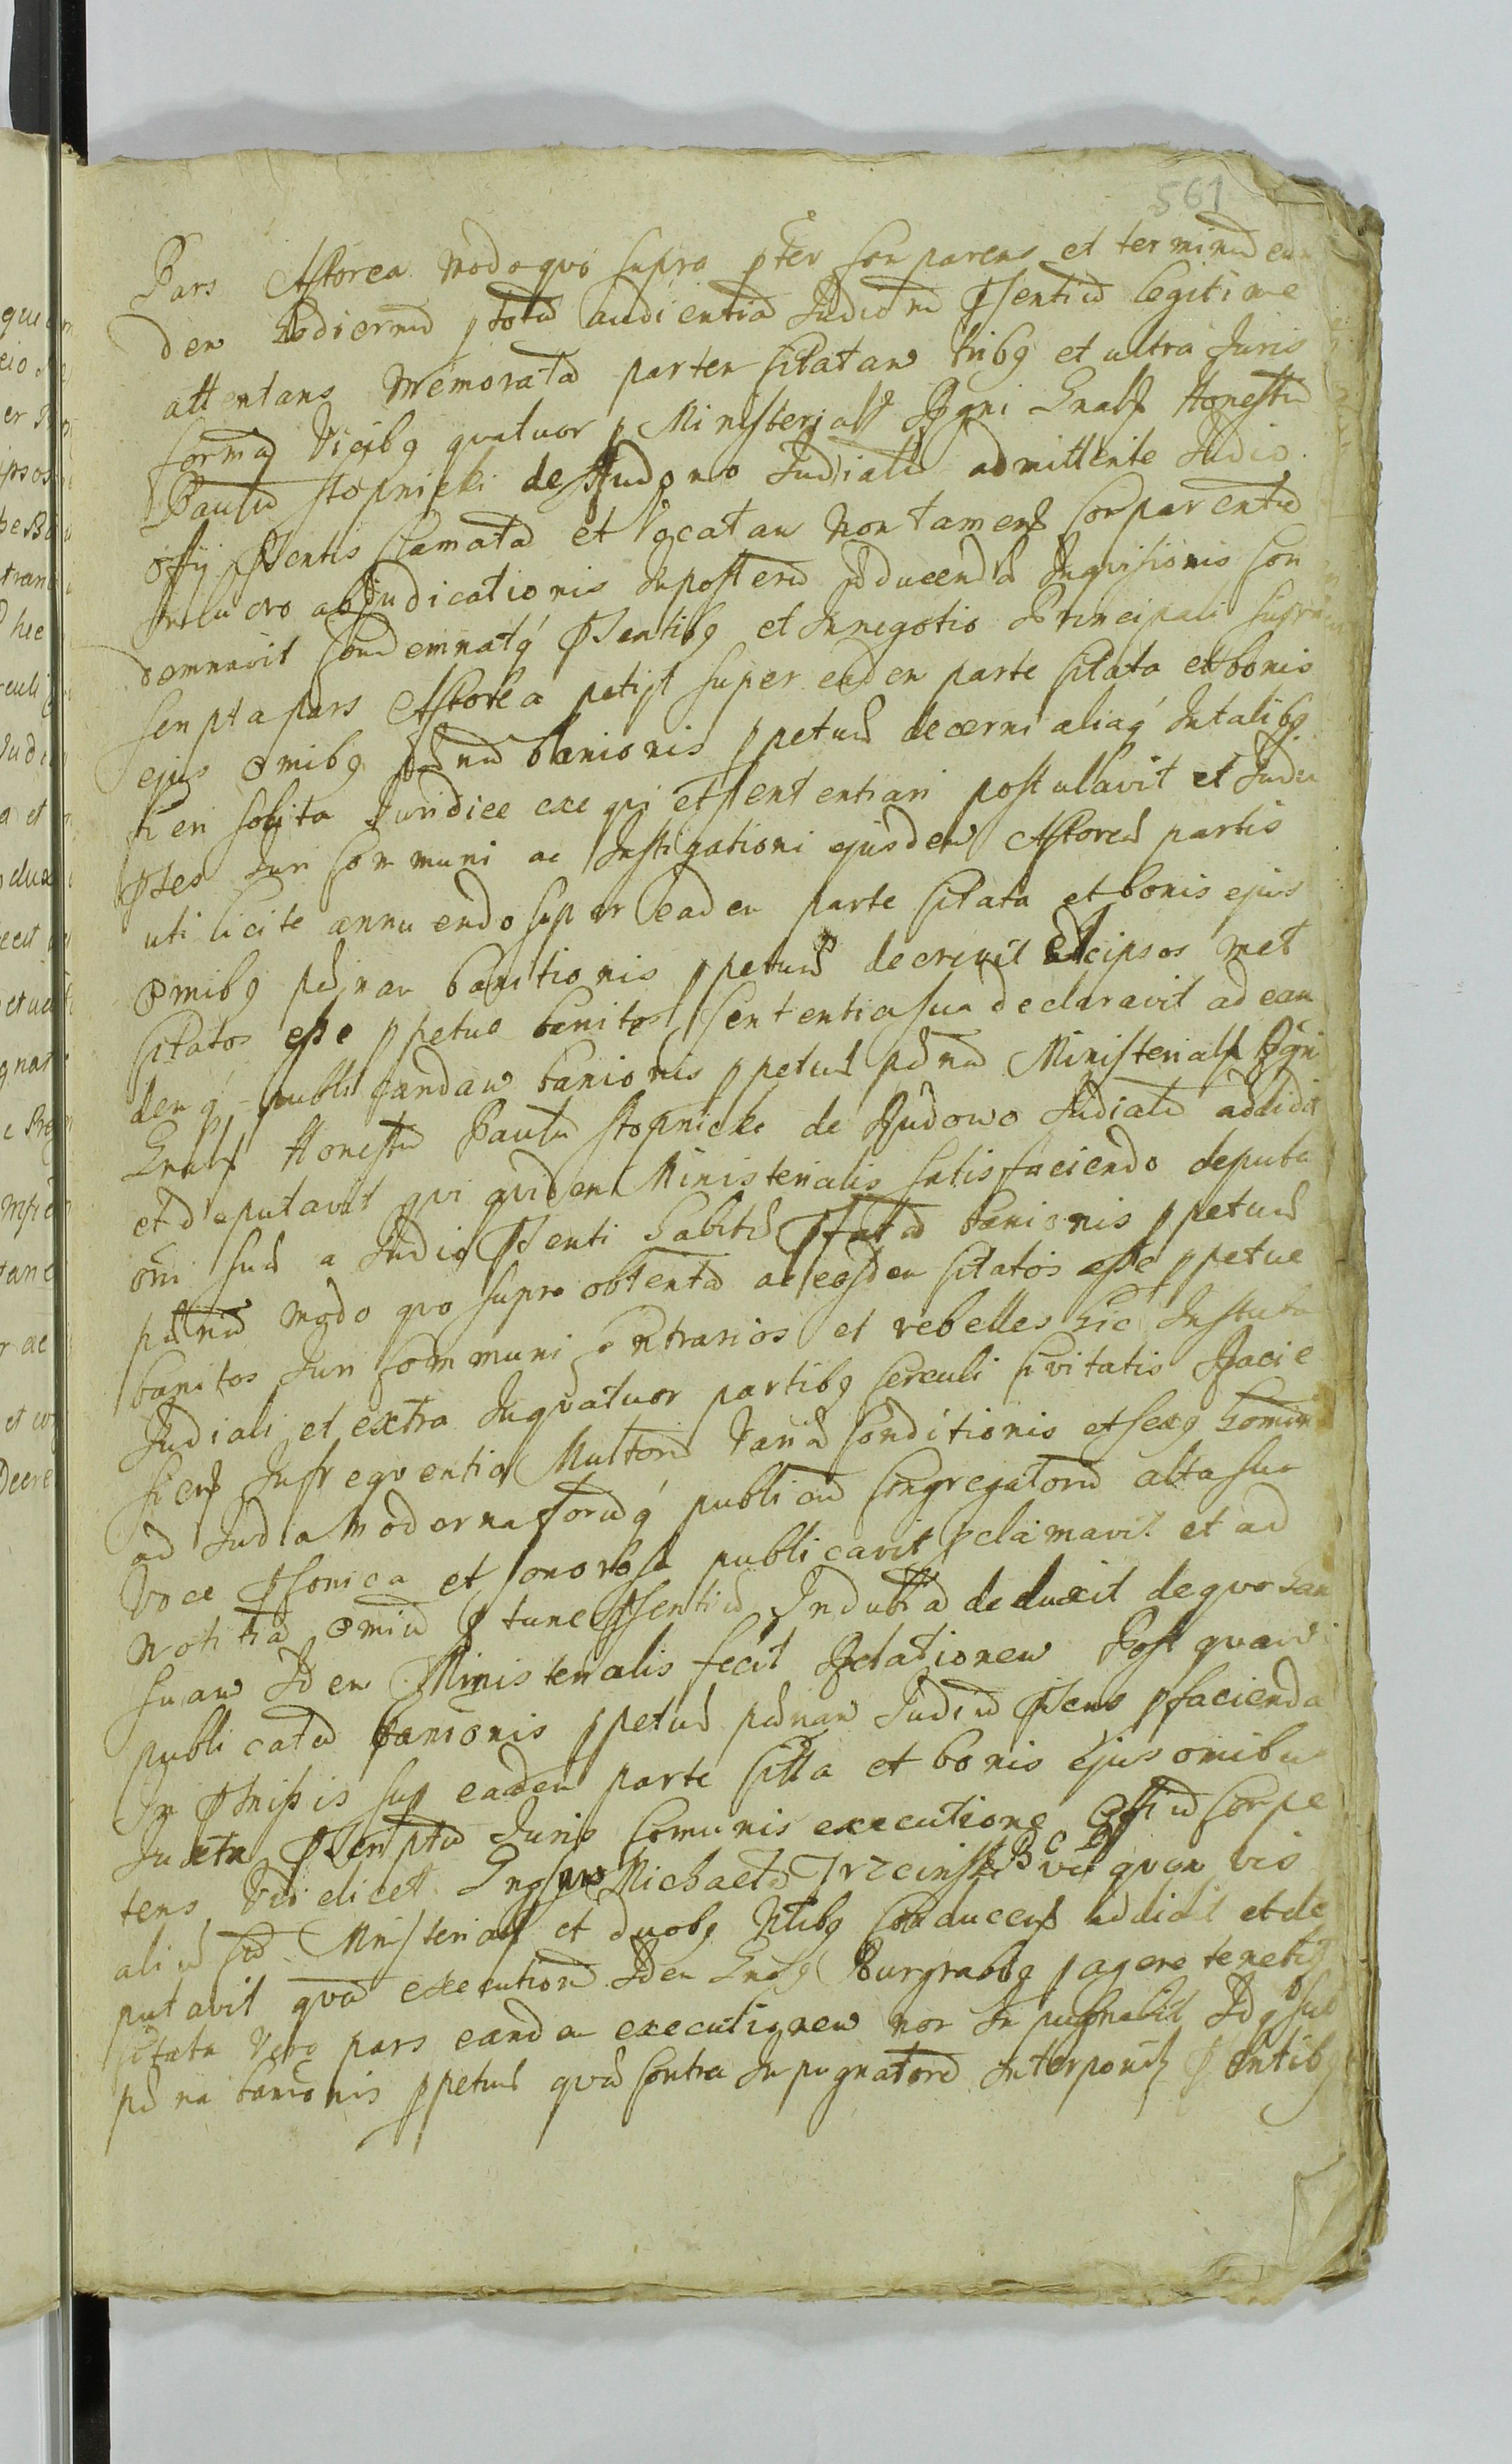 561
Pars Actorea modo quo supra pter Comparens et terminū ean
dem hodiernū p totā audientiā Judiorū Psentiū legitime
attentans memoratā partem Citatam tribꝫ et ultra Juris
formā Vicibꝫ quatuor p Ministerialē Rgni Gnalē Honestū
Paulū Stopnicki de Rudowo Judialē admittente Judio
Offij Psentis Clamatā et Vocatam Non tamen Comparentū
In lucro abjudicationis Inposterū adducendæ Inquisitionis Con
demnavit Condemnatqꝫ Psentibꝫ et In negotio Principali Supra
scripta pars Actorea petijt super eadem parte Citata et bonis
ejus omibꝫ pænā banionis ppetuæ decerni aliaqꝫ In talibꝫ
fieri solita Juridice exequi et sententiari postulavit et Judiū
Psens Juri Communi ac Instigationi ejusdem Actoreæ partis
uti licite annuendo super eadem parte Citata et bonis ejus
omibꝫ pænam banitionis ppetuæ decrevit et ipsos met
Citatos esse ppetuo banitos sententia sua declaravit ad ean
demqꝫ publicandam banionis ppetuæ pænā Ministerialē Rgni
Gnalē Honestū Paulū Stopnicki de Rudowo Judialē addidit
et deputavit qui quidem Ministerialis satisfaciendo deputa
oni suæ a Judio Psenti habitæ Pfatā banionis ppetuæ
pænā modo quo supra obtentā ac eosdem Citatos esse ppetue
banitos Juri Communi Contrarios et rebelles hic Instuba
Judiali et extra In quatuor partibꝫ Circuli Civitatis Facie
fiens In frequentia Multorū Variæ Conditionis et sexꝫ homin
ad Judia moderna forūqꝫ publicū Congregatorū alta sua
Voce Psonica et sonorosa publicavit pclamavit et ad
Notitiā omiū p tunc Psentiū Indubiā deduxit de quo han
suam Idem Ministerialis fecit Relationem Post quam
publicatā banionis ppetuæ pænam Judiū Psens p facienda
In Pmissis sup eadem parte Citta et bonis ejus omibus
Juxta Pscriptū Juris Comunis executione Offiū Compe
tens Videlicet Gnosum Michaelē Trzcinski B C B vel quem vis
aliū cū Ministeriali et duobꝫ Nlibꝫ Conducens addidit et de
putavit quā executionē Idem Gnosꝫ Burgrabꝫ pagere tenebit
Citata Vero pars eandem executionem non Inpugnabit Idqꝫ sub
pæna banionis ppetuæ quæ Contra Inpugnatorē Interponit Psentibꝫ